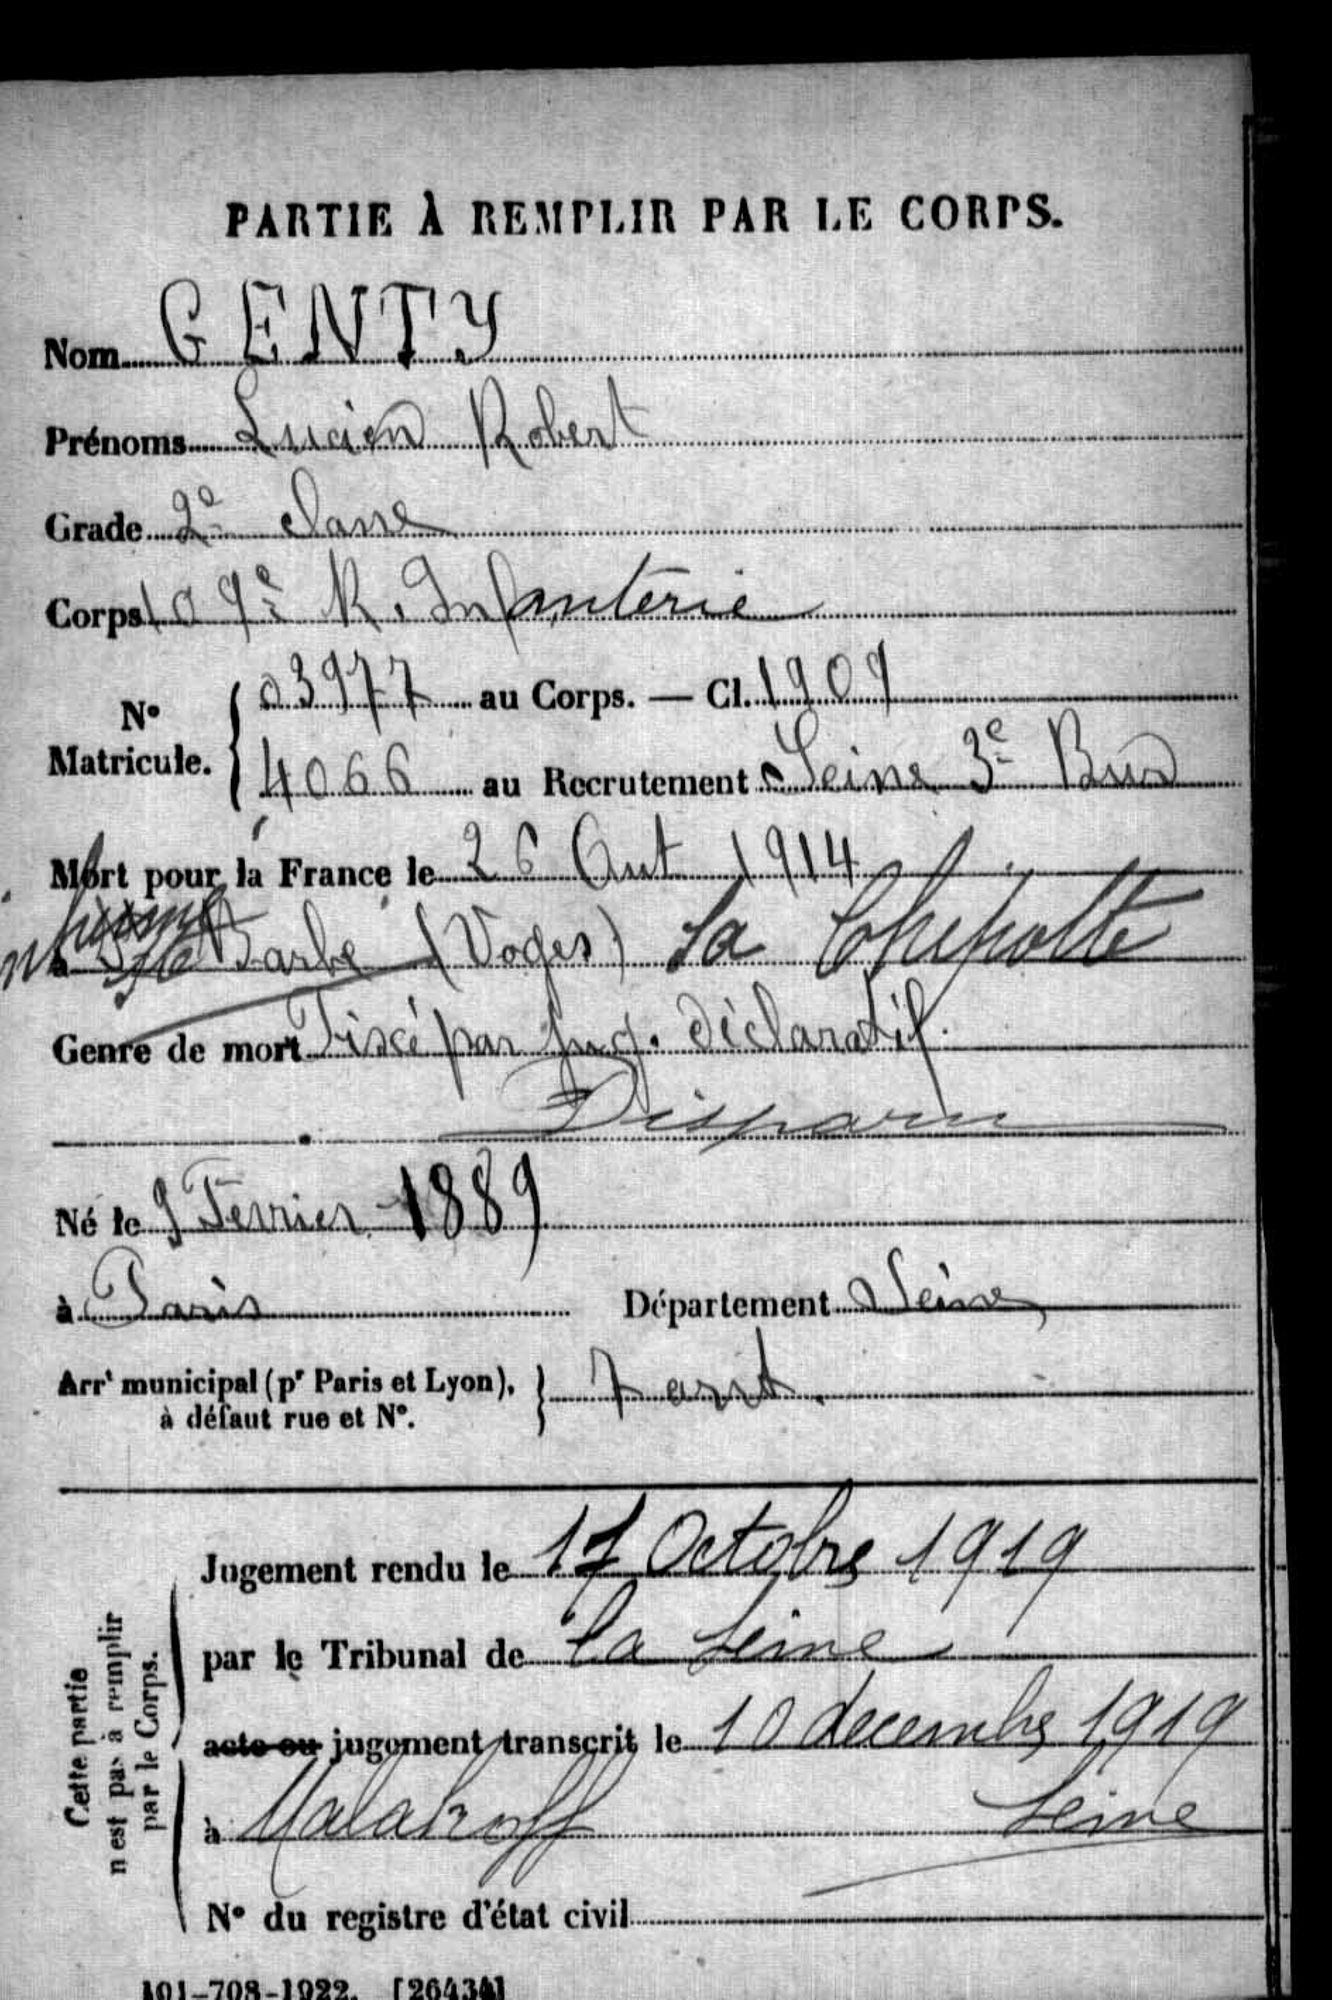 PARTIE À REMPLIR PAR LE CORPS.
Nom GENTY
Prénoms Lucien Robert
Grade 2e classe
Corps 109e R. Infanterie
N° Matricule. { 03977 au Corps. — Cl. 1909
4066 au Recrutement Seine 3e Bur
Mort pour la France le 26 Out 1914
à Ste Barbe (Voges) La Chipotte
Genre de mort Fixé par jug. déclaratif.
Disparu
Né le 9 Fevrier 1889
à Paris Département Seine
Arrt municipal (pr Paris et Lyon), } 7 arrt.
à défaut rue et N°.
Jugement rendu le 17 Octobre 1919
par le Tribunal de la Seine
acte ou jugement transcrit le 10 decembre 1919
à Malakoff Seine
N° du registre d'état civil
Cette partie
n'est pas à remplir
par le Corps.
101-708-1922. [26434]